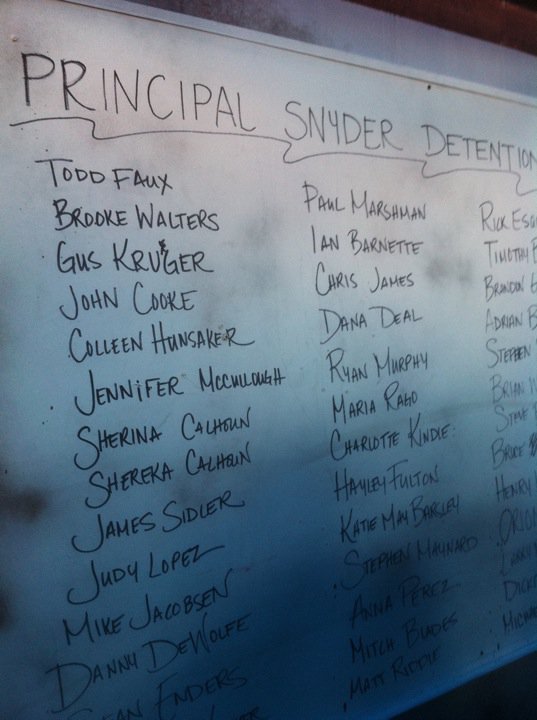 PRINCIPAL SNYDER DETENTION
TODD FAUX
BROOKE WALTERS
GUS KRUGER
JOHN COOKE
COLLEEN HUNSAKER
JENNIFER MCCULLOUGH
SHERINA CALHOUN
SHEREKA CALHOUN
JAMES SIDLER
JUDY LOPEZ
MIKE JACOBSEN
DANNY DEWOLFE
ENDERS
PAUL MARSHMAN
IAN BARNETTE
CHRIS JAMES
DANA DEAL
RYAN MURPHY
MARIA RAGO
CHARLOTTE KINDLE
HAYLEY FULTON
KATIE MAY BARSLEY
STEPHEN MAYNARD
ANNA PEREZ
MITCH BLADES
MATT RIDDLE
RICK
TIMOTHY
BRANDON
ADRIAN
STEPHEN
BRIAN
STEVE
BRUCE
HENRY